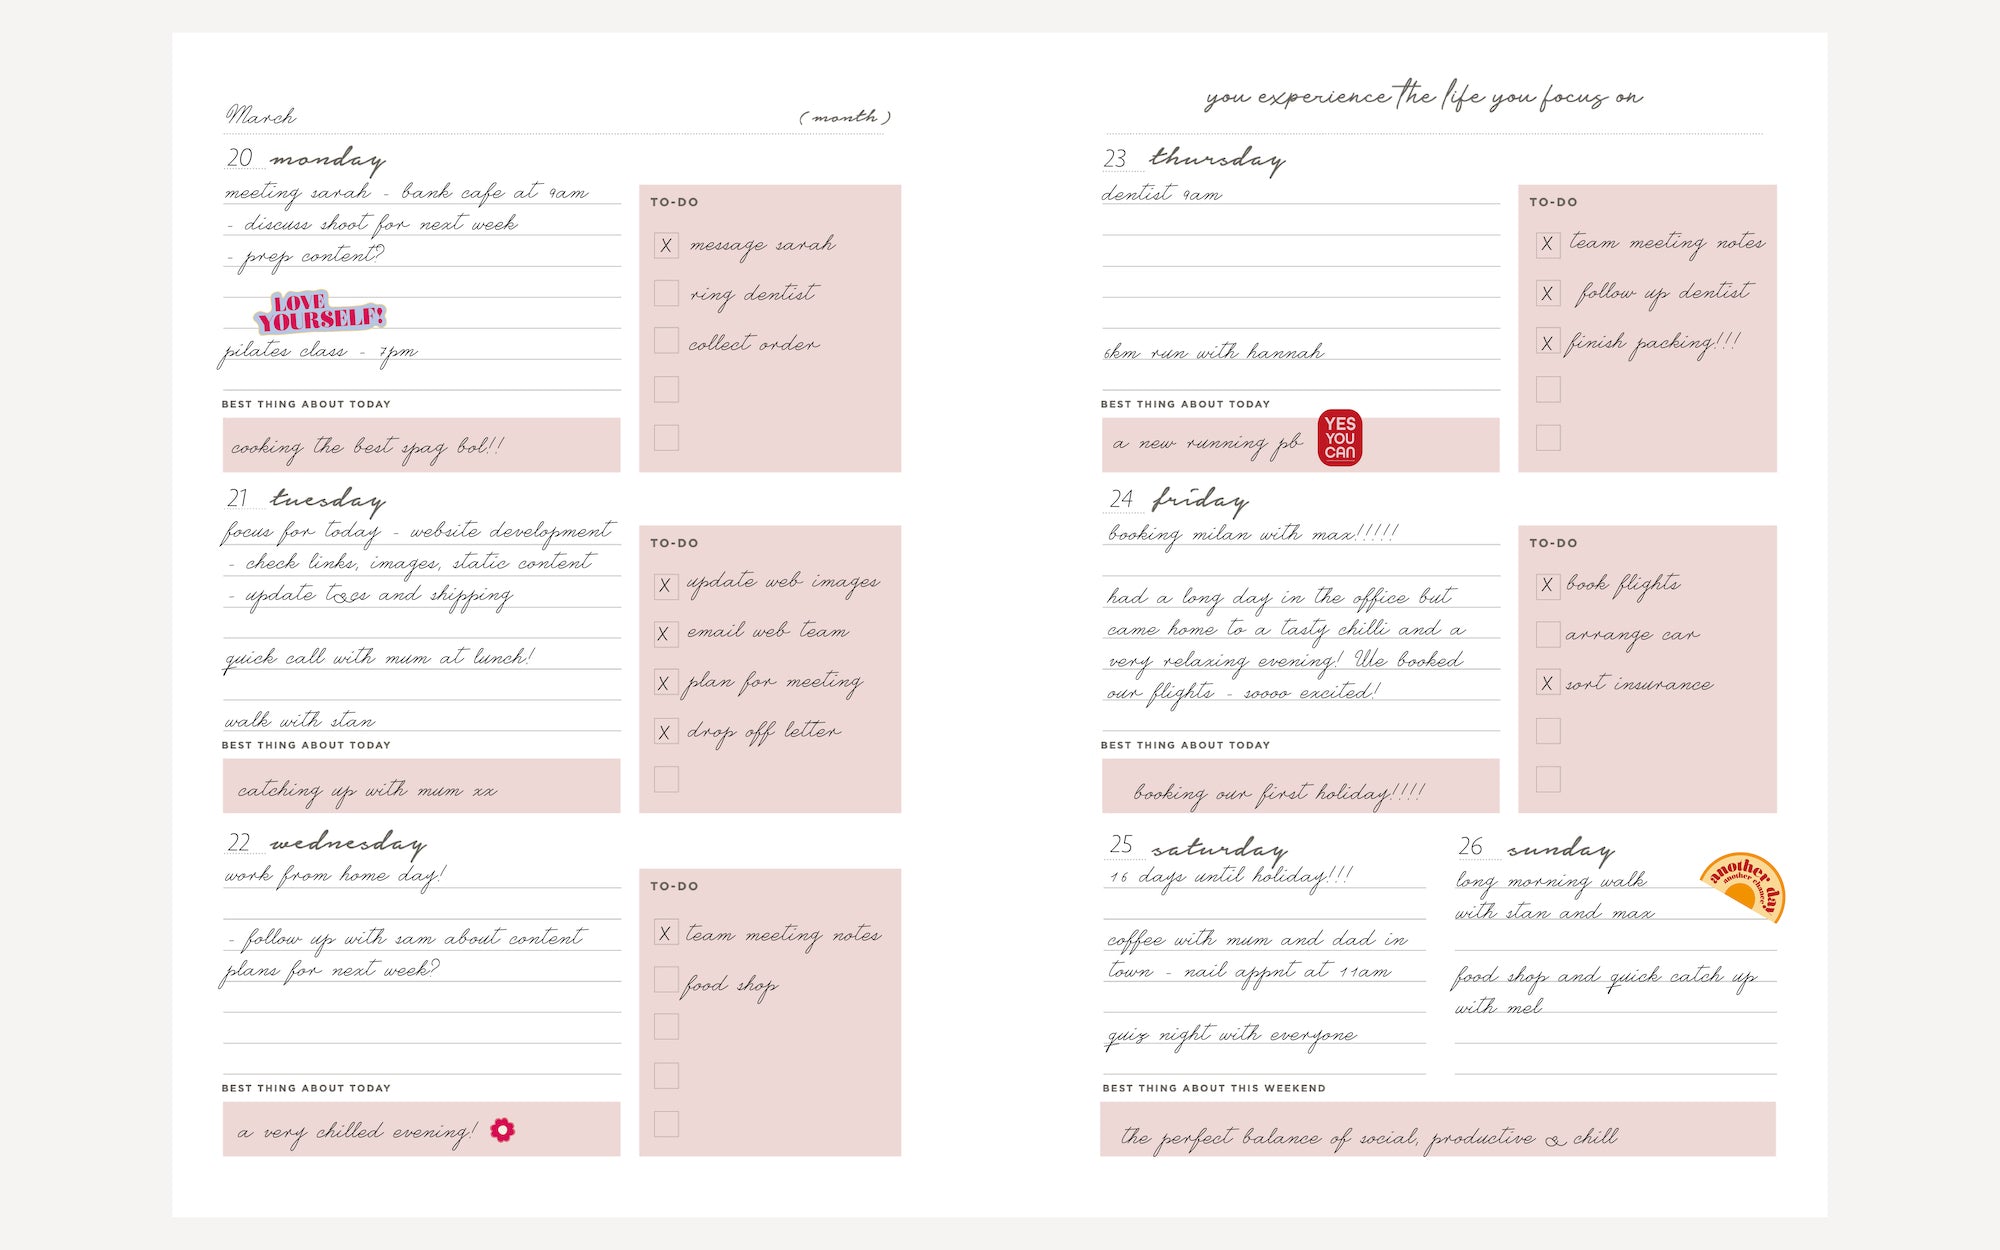 March
( month )
20 monday
meeting sarah - bank cafe at 9am
- discuss shoot for next week
- prep content?
LOVE
YOURSELF!
pilates class - 7pm
BEST THING ABOUT TODAY
cooking the best spag bol!!
TO-DO
X message sarah
ring dentist
collect order
21 tuesday
focus for today - website development
- check links, images, static content
- update t&cs and shipping
quick call with mum at lunch!
walk with stan
BEST THING ABOUT TODAY
catching up with mum xx
TO-DO
X update web images
X email web team
X plan for meeting
X drop off letter
22 wednesday
work from home day!
- follow up with sam about content
plans for next week?
BEST THING ABOUT TODAY
a very chilled evening!
TO-DO
X team meeting notes
food shop
you experience the life you focus on
23 thursday
dentist 9am
6km run with hannah
BEST THING ABOUT TODAY
a new running pb
YES
YOU
CAN
TO-DO
X team meeting notes
X follow up dentist
X finish packing!!!
24 friday
booking milan with max!!!!!
had a long day in the office but
came home to a tasty chilli and a
very relaxing evening! We booked
our flights - soooo excited!
BEST THING ABOUT TODAY
booking our first holiday!!!!
TO-DO
X book flights
arrange car
X sort insurance
25 saturday
16 days until holiday!!!
coffee with mum and dad in
town - nail appnt at 11am
quiz night with everyone
26 sunday
another day
another chance
long morning walk
with stan and max
food shop and quick catch up
with mel
BEST THING ABOUT THIS WEEKEND
the perfect balance of social, productive & chill